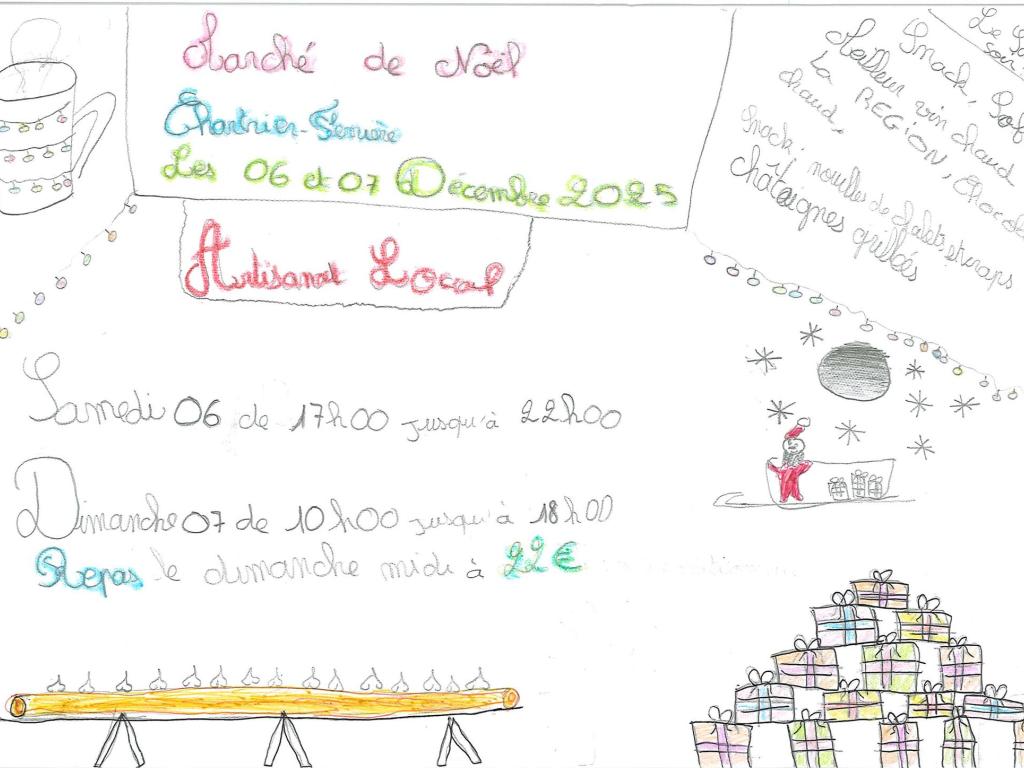 Marché de Noël
Chartrier-Ferrière
Les 06 et 07 Décembre 2025
Artisanat Local
Le
soir
Snack,
Meilleur vin chaud
La REGION, Chocol
chaud,
Snack: nouilles de
châtaignes grillées
Samedi 06 de 17h00 jusqu'à 22h00
Dimanche 07 de 10h00 jusqu'à 18h00
Repas le dimanche midi à 22€